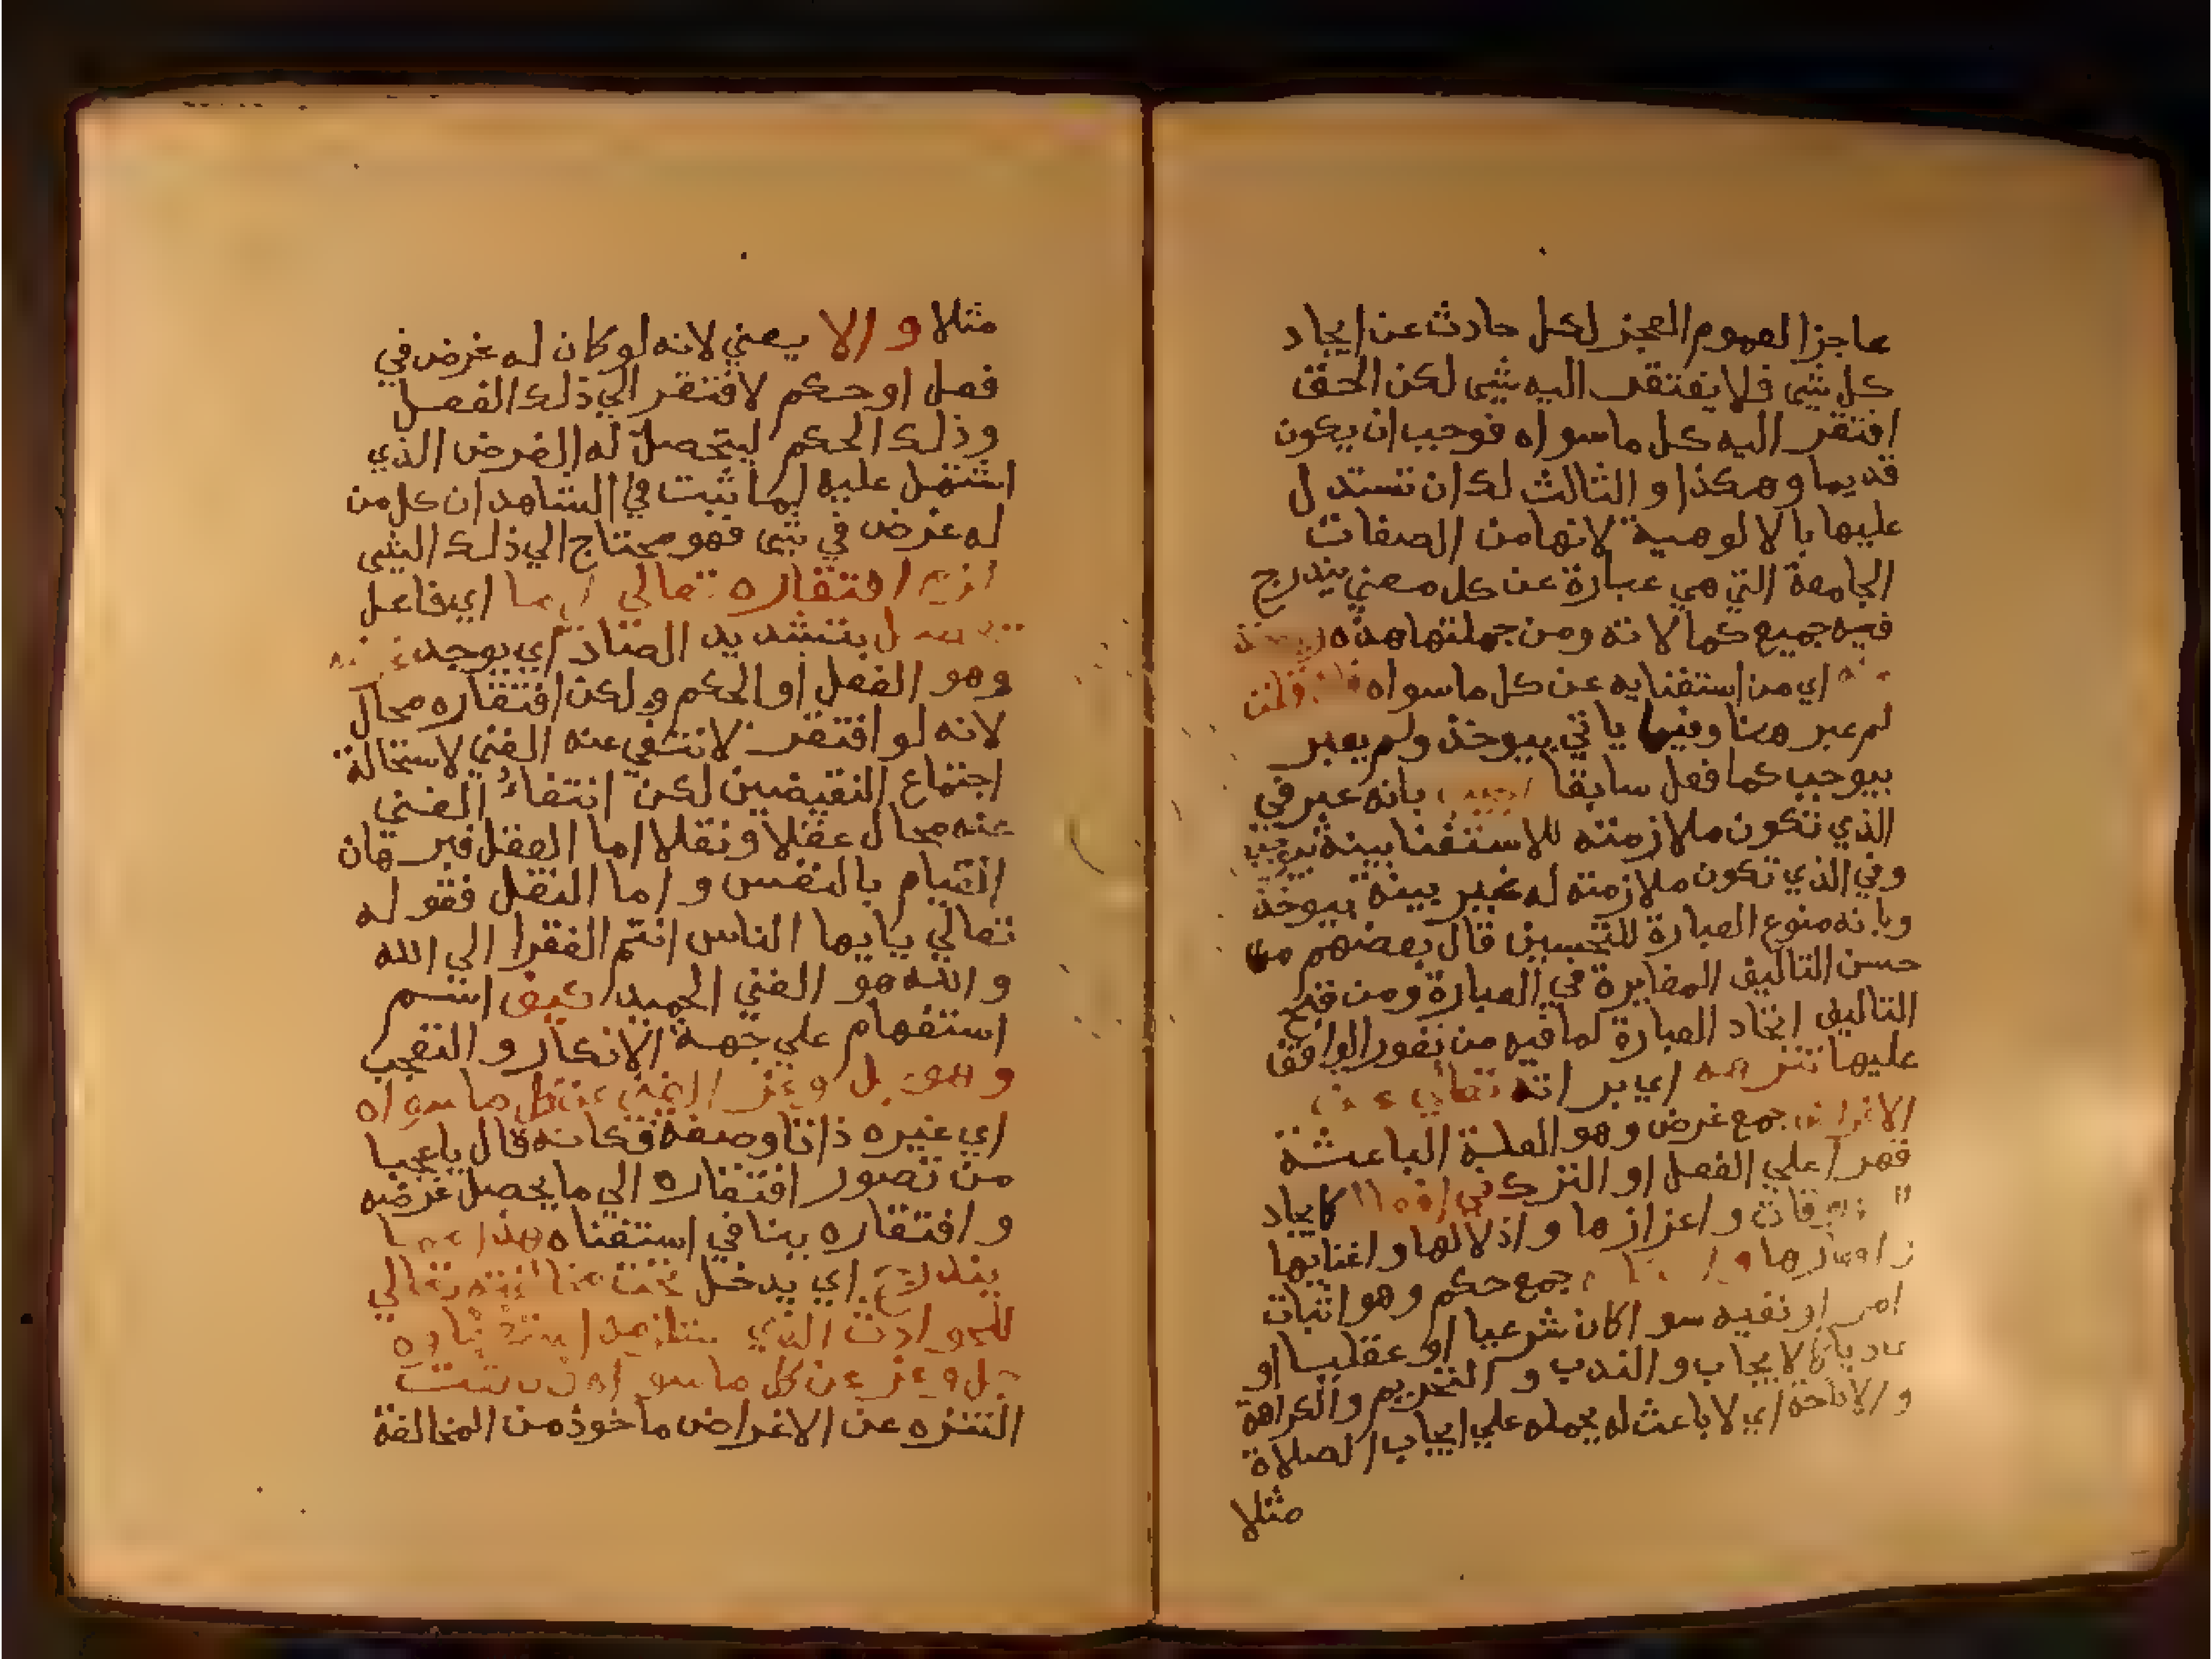 عاجزا لعموم العجز لكل حادث عن ايجاد
كل شي فلا يفتقر اليه شي لكن الحق
افتقر اليه كل ما سواه فوجب ان يكون
قديما وهكذا والثالث لك ان تستدل
عليها بالالوهية لانها من الصفات
الجامعة التي هي عبارة عن كل معني يندرج
فيه جميع كمالاته ومن جملتها هذه ويوخذ
منه اي من استغنايه عن كل ما سواه فان قلت
لم عبر هنا وفيما ياتي بيوخذ ولم يعبر
بيوجب كما فعل سابقا اجيب بانه عبر في
الذي تكون ملازمته للاستغنا بينة بيوجب
وفي الذي تكون ملازمته له غير بينة بيوخذ
وبانه منوع العبارة للتحسين قال بعضهم من
حسن التاليف المغايرة في العبارة ومن قبح
التاليف اتحاد العبارة لما فيه من نفور الواقف
عليها تنزهه اي براته تعالي عن
الاغراض جمع غرض وهو العلة الباعثة
قهرا علي الفعل او الترك في افعاله كايجاد
واعزازها واذلالها واغنايها
جمع حكم وهو اثبات
امر او نفيه سوا كان شرعيا او عقليا او
عاديا كالايجاب والندب والتحريم والكراهة
والاباحة اي لا باعث له يحمله علي ايجاب الصلاة
مثلا
مثلا والا يعني لانه لو كان له غرض في
فعل او حكم لافتقر الي ذلك الفعل
وذلك الحكم ليتحصل له الغرض الذي
اشتمل عليه لما ثبت في الشاهد ان كل من
له غرض في شي فهو محتاج الي ذلك الشي
لزم افتقاره تعالي الي ما اي فاعل
يحصل بتشديد الصاد اي يوجد غرضه
وهو الفعل او الحكم ولكن افتقاره محال
لانه لو افتقر لانتفي عنه الغني لاستحالة
اجتماع النقيضين لكن انتفاء الغني
عنه محال عقلا ونقلا اما العقل فبرهان
القيام بالنفس واما النقل فقوله
تعالي يايها الناس انتم الفقرا الي الله
والله هو الغني الحميد كيف اسم
استفهام علي جهة الانكار والتعجب
وهو جل وعز الغني عن كل ما سواه
اي غيره ذاتا وصفة فكانه قال يا عجبا
من تصور افتقاره الي ما يحصل غرضه
وافتقاره ينافي استغناه هذا
يندرج اي يدخل تحت
جل وعز عن كل ما سواه
التنزه عن الاغراض ماخوذ من المخالفة